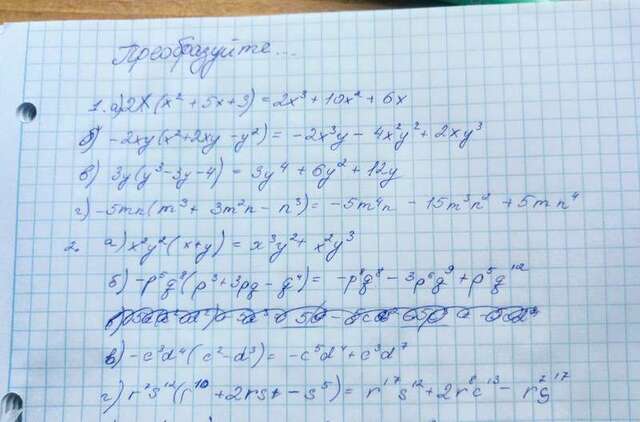 Преобразуйте...
1. а) 2x(x² + 5x + 3) = 2x³ + 10x² + 6x
б) -2xy(x² + 2xy - y²) = -2x³y - 4x²y² + 2xy³
в) 3y(y³ - 3y - 4) = 3y⁴ + 6y² + 12y
г) -5mn(m³ + 3m²n - n³) = -5m⁴n - 15m³n² + 5mn⁴
2. а) x²y²(x+y) = x³y² + x²y³
б) -p⁵q⁸(p³ + 3pq - q⁴) = -p⁸q⁸ - 3p⁶q⁹ + p⁵q¹²
в) -c³d⁴(c² - d³) = -c⁵d⁴ + c³d⁷
г) r⁷s¹²(r¹⁰ + 2rs - s⁵) = r¹⁷s¹² + 2r⁸c¹³ - r⁷s¹⁷